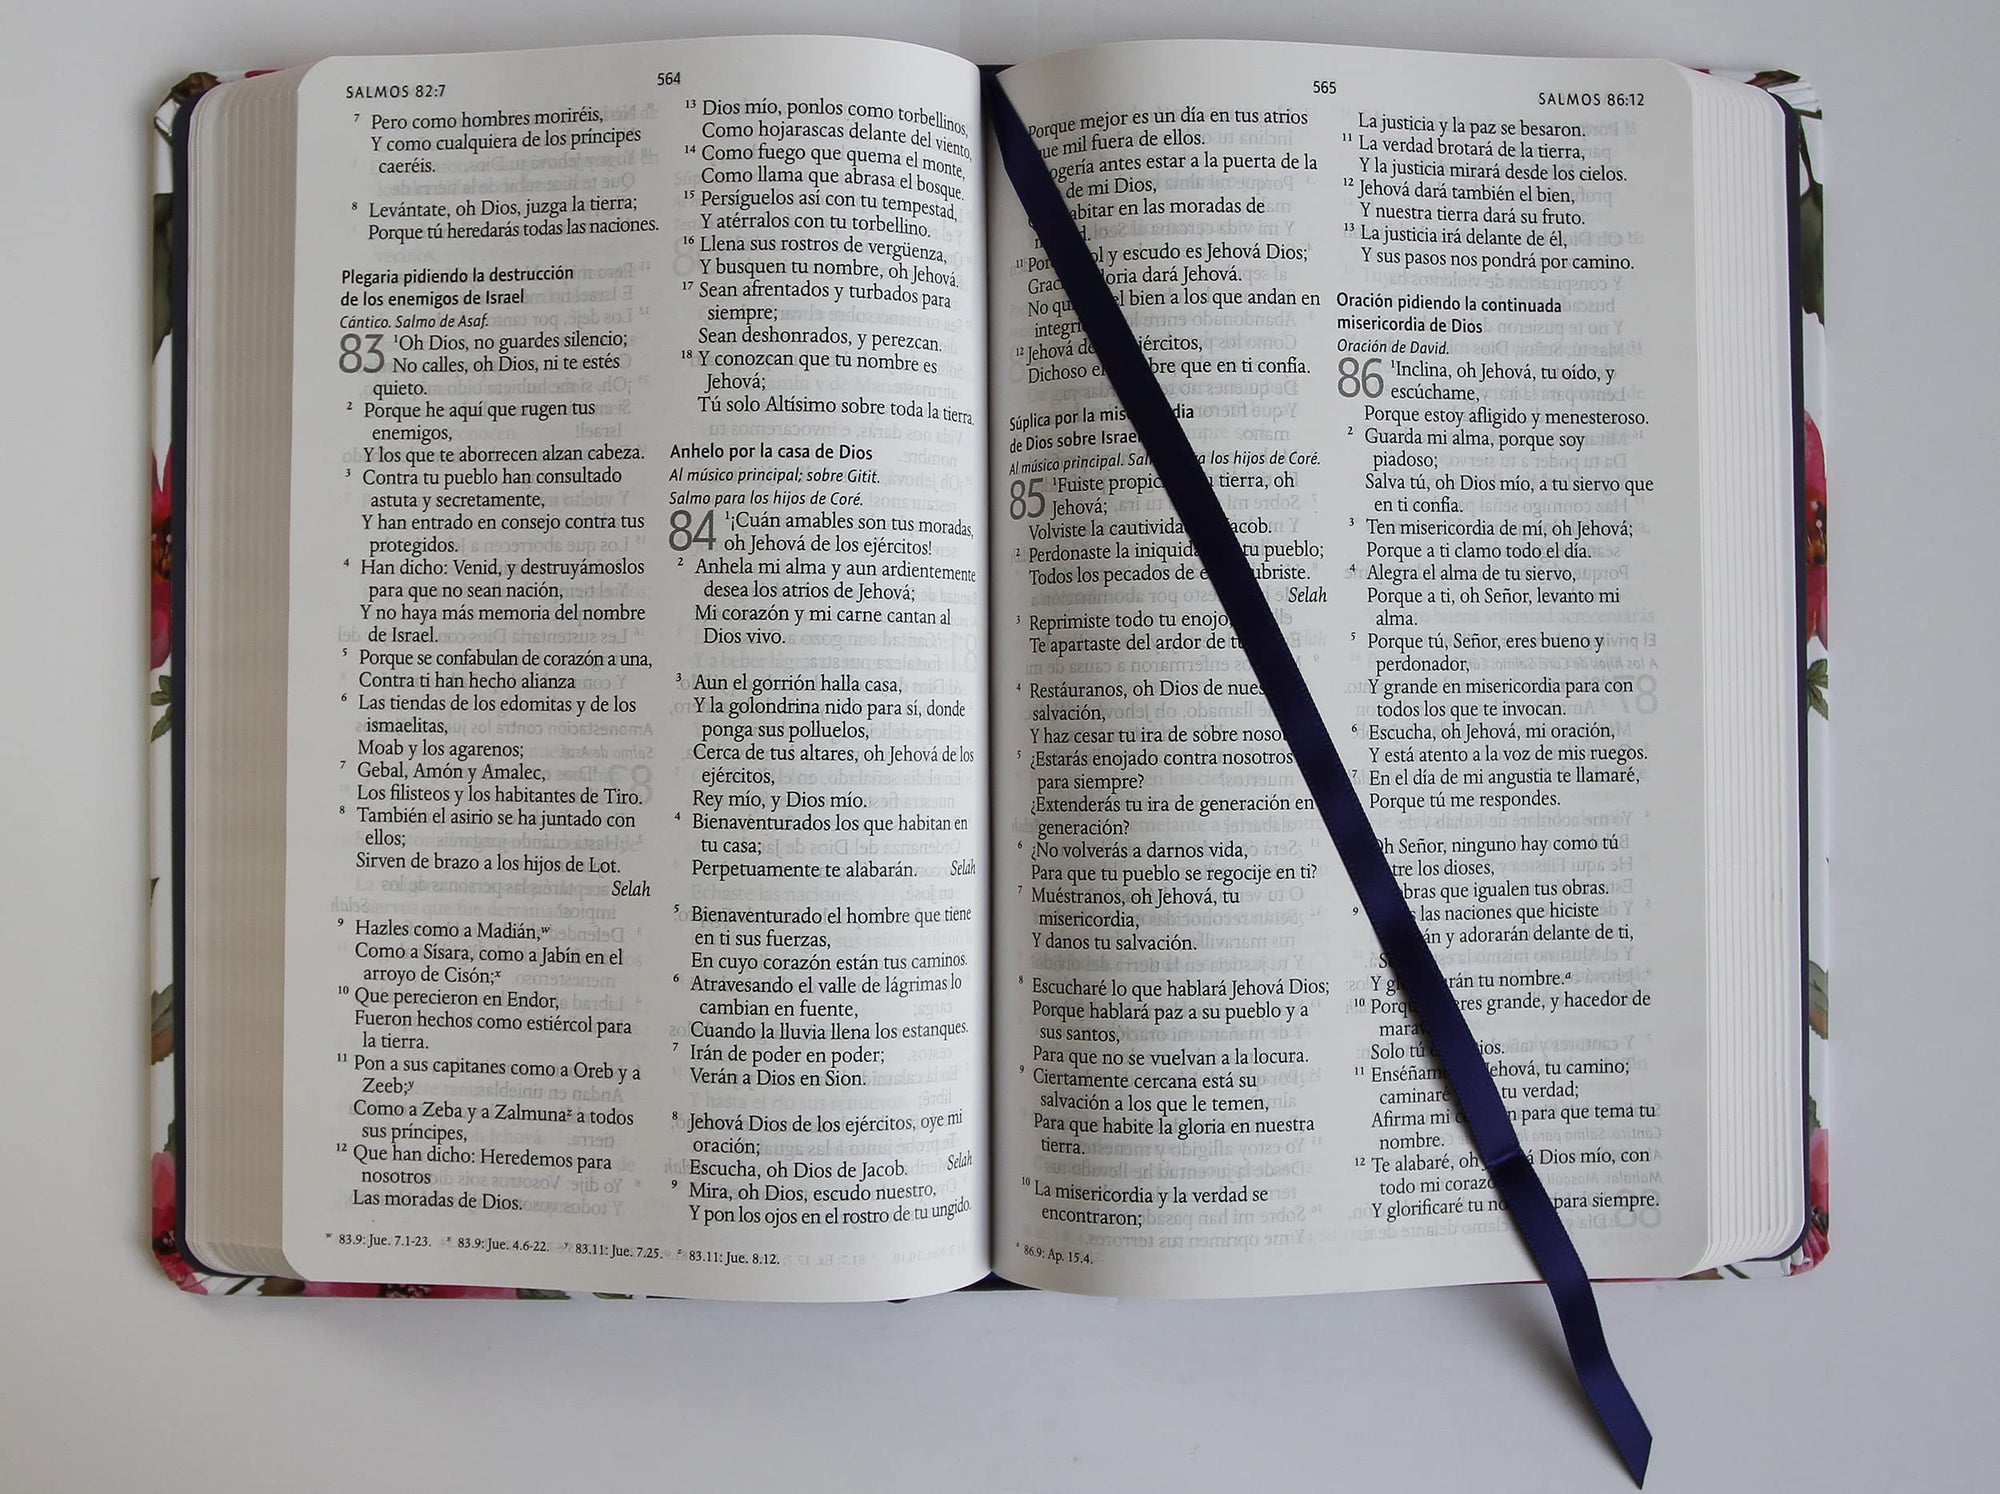 SALMOS 82:7
564
7 Pero como hombres moriréis,
Y como cualquiera de los príncipes
caeréis.
8 Levántate, oh Dios, juzga la tierra;
Porque tú heredarás todas las naciones.
Plegaria pidiendo la destrucción
de los enemigos de Israel
Cántico. Salmo de Asaf.
83 1Oh Dios, no guardes silencio;
No calles, oh Dios, ni te estés
quieto.
2 Porque he aquí que rugen tus
enemigos,
Y los que te aborrecen alzan cabeza.
3 Contra tu pueblo han consultado
astuta y secretamente,
Y han entrado en consejo contra tus
protegidos.
4 Han dicho: Venid, y destruyámoslos
para que no sean nación,
Y no haya más memoria del nombre
de Israel.
5 Porque se confabulan de corazón a una,
Contra ti han hecho alianza
6 Las tiendas de los edomitas y de los
ismaelitas,
Moab y los agarenos;
7 Gebal, Amón y Amalec,
Los filisteos y los habitantes de Tiro.
8 También el asirio se ha juntado con
ellos;
Sirven de brazo a los hijos de Lot.
Selah
9 Hazles como a Madián,w
Como a Sísara, como a Jabín en el
arroyo de Cisón;x
10 Que perecieron en Endor,
Fueron hechos como estiércol para
la tierra.
11 Pon a sus capitanes como a Oreb y a
Zeeb;y
Como a Zeba y a Zalmunaz a todos
sus príncipes,
12 Que han dicho: Heredemos para
nosotros
Las moradas de Dios.
13 Dios mío, ponlos como torbellinos,
Como hojarascas delante del viento,
14 Como fuego que quema el monte,
Como llama que abrasa el bosque.
15 Persíguelos así con tu tempestad,
Y atérralos con tu torbellino.
16 Llena sus rostros de vergüenza,
Y busquen tu nombre, oh Jehová.
17 Sean afrentados y turbados para
siempre;
Sean deshonrados, y perezcan.
18 Y conozcan que tu nombre es
Jehová;
Tú solo Altísimo sobre toda la tierra.
Anhelo por la casa de Dios
Al músico principal; sobre Gitit.
Salmo para los hijos de Coré.
84 1¡Cuán amables son tus moradas,
oh Jehová de los ejércitos!
2 Anhela mi alma y aun ardientemente
desea los atrios de Jehová;
Mi corazón y mi carne cantan al
Dios vivo.
3 Aun el gorrión halla casa,
Y la golondrina nido para sí, donde
ponga sus polluelos,
Cerca de tus altares, oh Jehová de los
ejércitos,
Rey mío, y Dios mío.
4 Bienaventurados los que habitan en
tu casa;
Perpetuamente te alabarán. Selah
5 Bienaventurado el hombre que tiene
en ti sus fuerzas,
En cuyo corazón están tus caminos.
6 Atravesando el valle de lágrimas lo
cambian en fuente,
Cuando la lluvia llena los estanques.
7 Irán de poder en poder;
Verán a Dios en Sion.
8 Jehová Dios de los ejércitos, oye mi
oración;
Escucha, oh Dios de Jacob. Selah
9 Mira, oh Dios, escudo nuestro,
Y pon los ojos en el rostro de tu ungido.
w 83.9: Jue. 7.1-23. x 83.9: Jue. 4.6-22. y 83.11: Jue. 7.25. z 83.11: Jue. 8.12.
565
SALMOS 86:12
Porque mejor es un día en tus atrios
que mil fuera de ellos.
antes estar a la puerta de la
de mi Dios,
en las moradas de
11 y escudo es Jehová Dios;
dará Jehová.
No el bien a los que andan en
12 Jehová de ejércitos,
Dichoso el que en ti confía.
Súplica por la
de Dios sobre Israel
Al músico principal. los hijos de Coré.
85 1Fuiste tierra, oh
Jehová;
Volviste la Jacob.
2 Perdonaste la tu pueblo;
Todos los pecados de
Selah
3 Reprimiste todo tu enojo
Te apartaste del ardor de
4 Restáuranos, oh Dios de
salvación,
Y haz cesar tu ira de sobre
5 ¿Estarás enojado contra nosotros
para siempre?
¿Extenderás tu ira de generación en
generación?
6 ¿No volverás a darnos vida,
Para que tu pueblo se regocije en ti?
7 Muéstranos, oh Jehová, tu
misericordia,
Y danos tu salvación.
8 Escucharé lo que hablará Jehová Dios;
Porque hablará paz a su pueblo y a
sus santos,
Para que no se vuelvan a la locura.
9 Ciertamente cercana está su
salvación a los que le temen,
Para que habite la gloria en nuestra
tierra.
10 La misericordia y la verdad se
encontraron;
La justicia y la paz se besaron.
11 La verdad brotará de la tierra,
Y la justicia mirará desde los cielos.
12 Jehová dará también el bien,
Y nuestra tierra dará su fruto.
13 La justicia irá delante de él,
Y sus pasos nos pondrá por camino.
Oración pidiendo la continuada
misericordia de Dios
Oración de David.
86 1Inclina, oh Jehová, tu oído, y
escúchame,
Porque estoy afligido y menesteroso.
2 Guarda mi alma, porque soy
piadoso;
Salva tú, oh Dios mío, a tu siervo que
en ti confía.
3 Ten misericordia de mí, oh Jehová;
Porque a ti clamo todo el día.
4 Alegra el alma de tu siervo,
Porque a ti, oh Señor, levanto mi
alma.
5 Porque tú, Señor, eres bueno y
perdonador,
Y grande en misericordia para con
todos los que te invocan.
6 Escucha, oh Jehová, mi oración,
Y está atento a la voz de mis ruegos.
7 En el día de mi angustia te llamaré,
Porque tú me respondes.
Oh Señor, ninguno hay como tú
los dioses,
que igualen tus obras.
9 las naciones que hiciste
y adorarán delante de ti,
Y tu nombre.a
10 grande, y hacedor de
Solo tú
11 Jehová, tu camino;
caminaré tu verdad;
Afirma mi para que tema tu
nombre.
12 Te alabaré, oh Dios mío, con
todo mi
Y glorificaré tu para siempre.
a 86.9: Ap. 15.4.